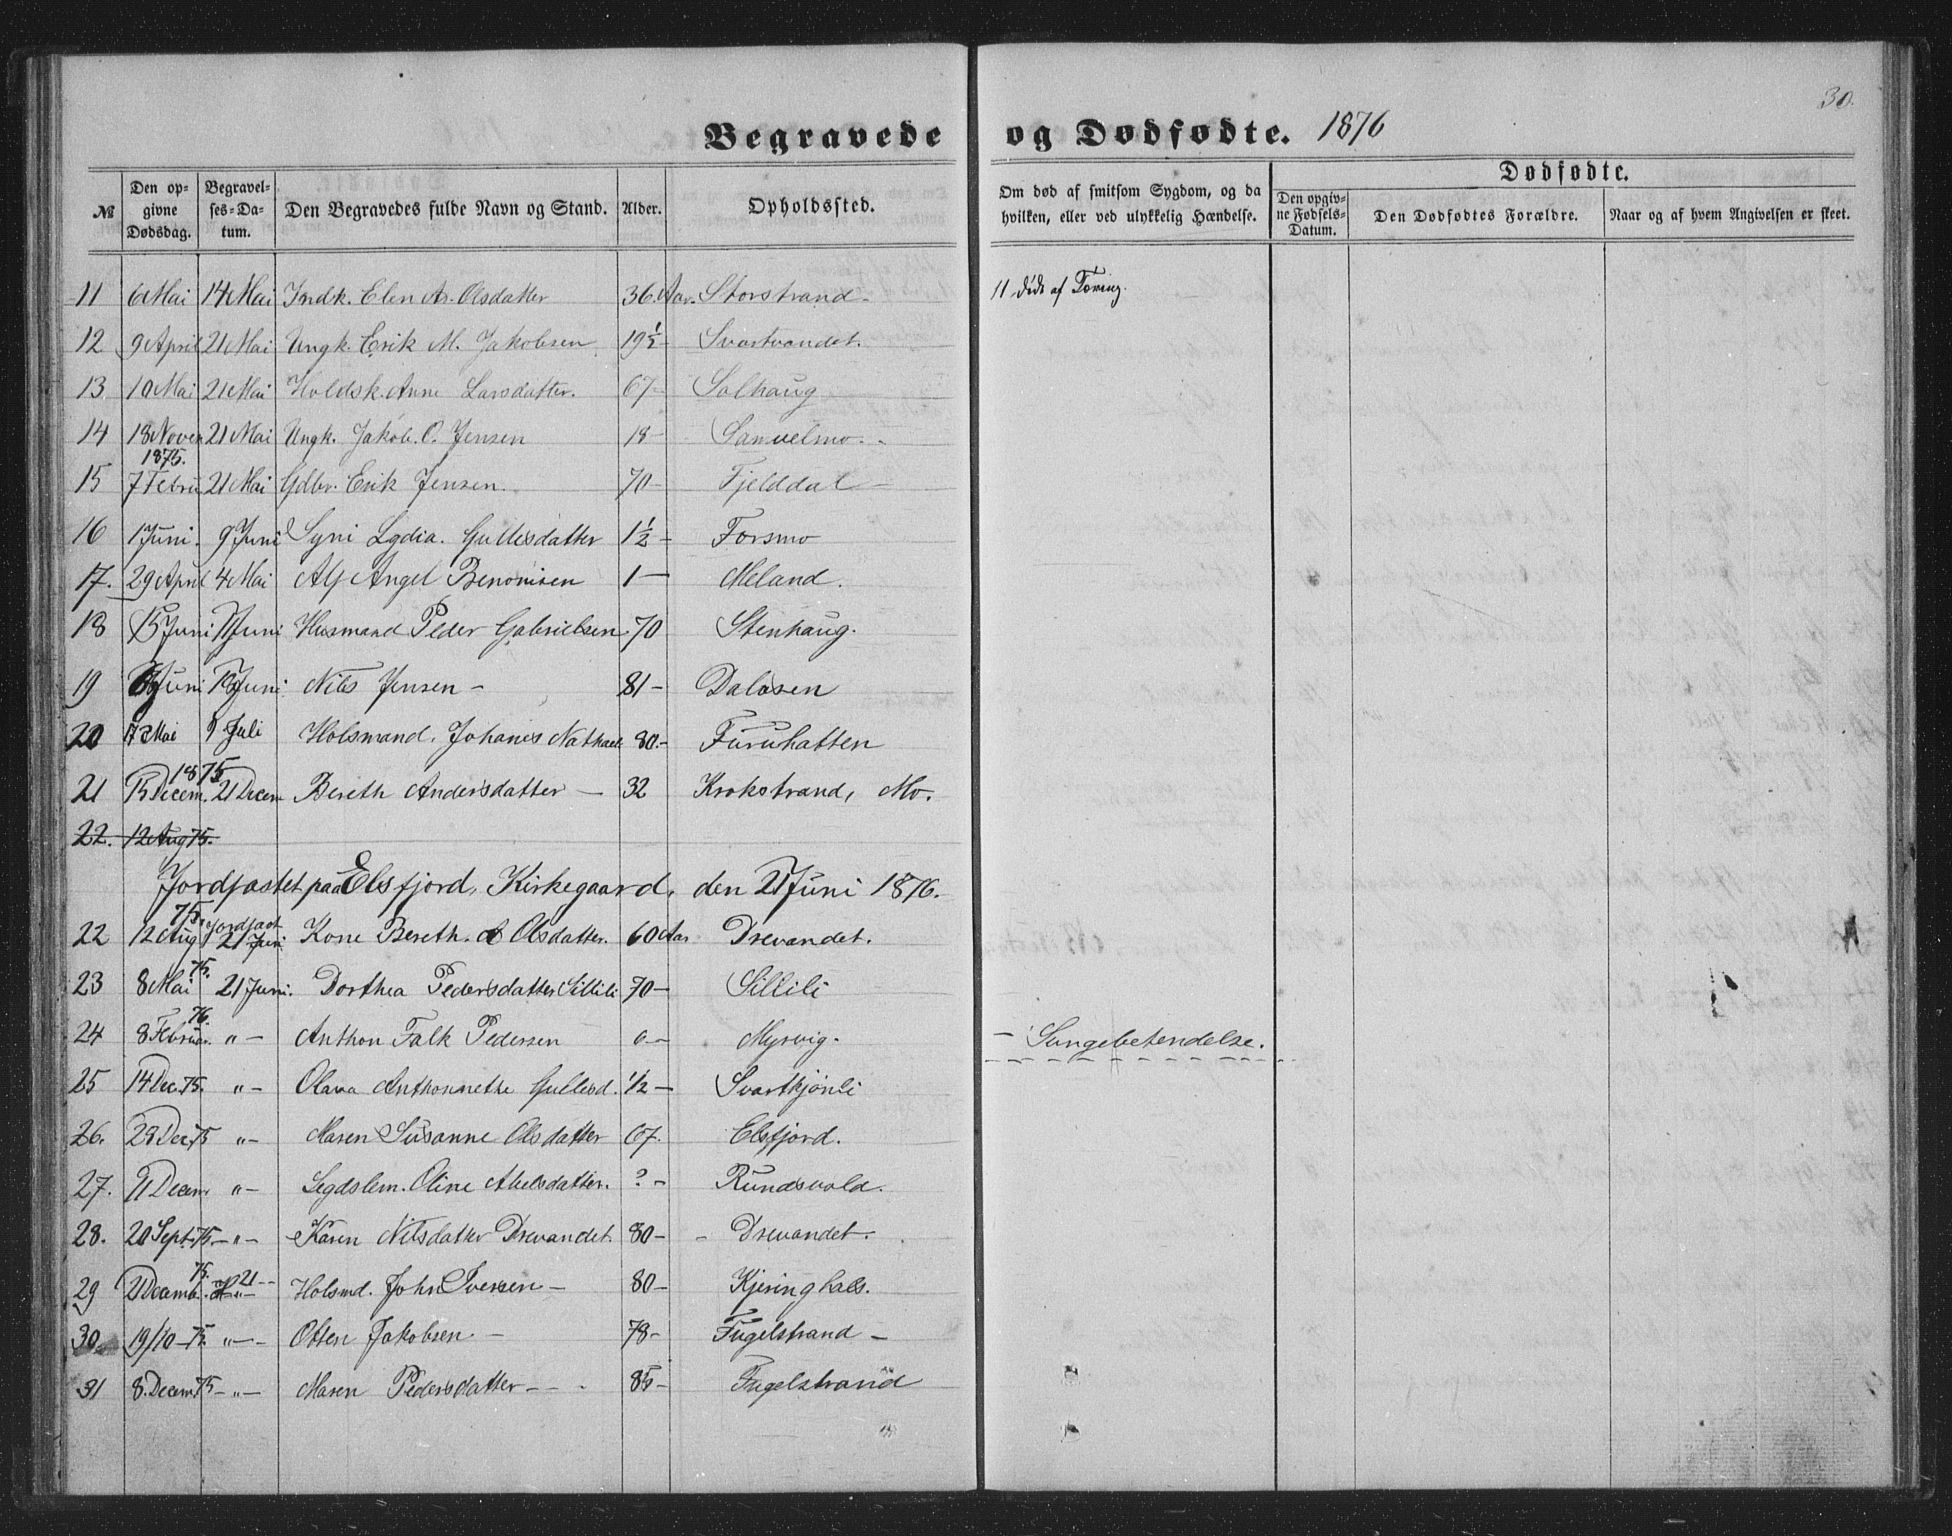 30.
Begravede og Dødfødte. 1876
№ Den opgivne Dødsdag. Begravelses-Datum. Den Begravedes fulde Navn og Stand. Alder. Opholdssted. Om død af smitsom Sygdom, og da hvilken, eller ved ulykkelig Hændelse. Dødfødte. Den opgivne Fødsels-Datum. Den Dødfødtes Forældre. Naar og af hvem Angivelsen er skeet.
11 6 Mai 14 Mai Indk. Elen A. Olsdatter 36 Aar. Storstrand - 11 døde af Tæring.
12 9 April 21 Mai Ungk. Erik M. Jakobsen 19½ Svartvandet.
13 10 Mai 21 Mai Holdsk. Anne Larsdatter. 67- Solhaug
14 18 Novem 1875. 21 Mai Ungk. Jakob. O. Jensen 18- Samuelmo. -
15 7 Febru 21 Mai Gdbr. Erik Jensen. 70- Fjelddal -
16 1 Juni. 9 Juni Syni Lydia. Gullesdatter 1½ - Forsmo
17. 29 April 4 Mai Alf Angel Benonisen 1 - Meland.
18 15 Juni Juni Husmand Peder Gabrielsen 70 Stenhaug.
19 Juni 18 Juni Nils Jensen - 81 - Dalosen
20 17 Mai 9 Juli Holsmand. Johanes Nathael 80.- Furuhatten
21 15 Decem. 1875 21 Decem Bereth Andersdatter - 32 Krokstrand, Mo.
22. 12 Aug 75.
Jordfastet paa Elsfjord, Kirkegaard, den 21 Juni 1876.
22 12 Aug 75. jordfast 21 Juni Kone Bereth. Olsdatter. 60 Aar Drevandet.
23 8 Mai 75. 21 Juni. Dorthea Pedersdatter Sillili 70 - Sillili
24 8 Februar. 76. " - Anthon Falk Pedersen 0 - Myrvig. - Lungebetendelse.
25 14 Dec. 75. " - Olava Anthonnethe Gullesd. ½ - Svartkjønli
26. 29 Dec. 75 " - Maren Susanne Olsdatter 67. Elsfjord.
27. Decem " - Legdslem. Oline Abelsdatter. ? - Rundsvold.
28. 20 Sept. 75. - " - Karen Nilsdatter Drevandet. 80 - - Drevandet.
29 21 Decemb. 75. 21 - " - Holsmd. John Iversen - 80 - Kjeringhals.
30. 19/10 - 75. " - - Otten Jakobsen. - 78 - Fugelstrand -
31 8. Decem 75 - " - Maren Pedersdatter - - - 85 - Fugelstrand